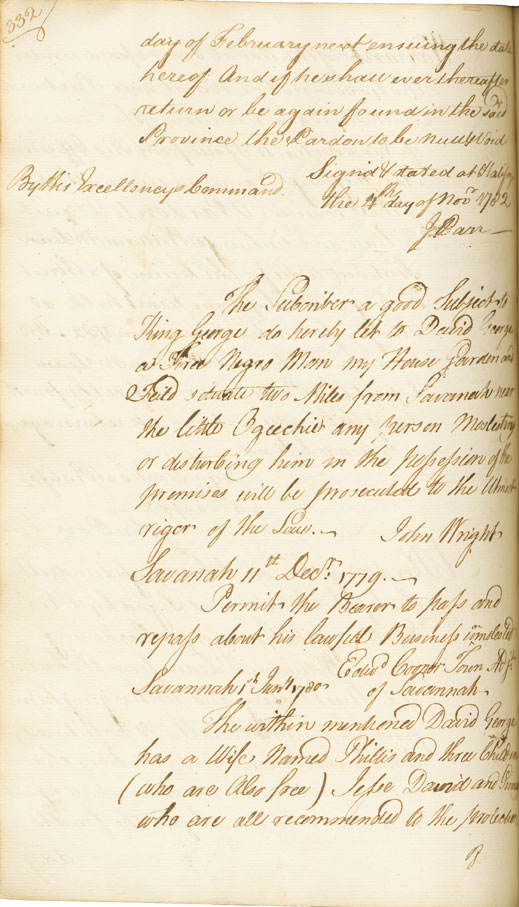 332
day of February next ensuing the date
hereof And if he shall ever thereafter
return or be again found in the said
Province the Pardon to be null & Void
Signed & dated at Halifax
By His Excellencys Command. the 4th day of Novr 1782
J Parr
The Subcriber a good Subject to
King George do hereby let to David George
a Free Negro Man my House Garden and
Feild situate two Miles from Savanah near
the little Ogechie any person Molesting
or disturbing him in the possession of the
premises will be prosecuted to the Utmost
rigor of the Law. John Wright
Savanah 11th Decr. 1779.
Permit the Bearer to pass and
repass about his lawfull Business unmolested
Edwd Cooper Town Adjt
Savannah 1st Jany 1780 of Savannah
The within mentioned David George
has a Wife Named Phillis and three Children
(who are Also free) Jesse David and
who are all recommended to the protection